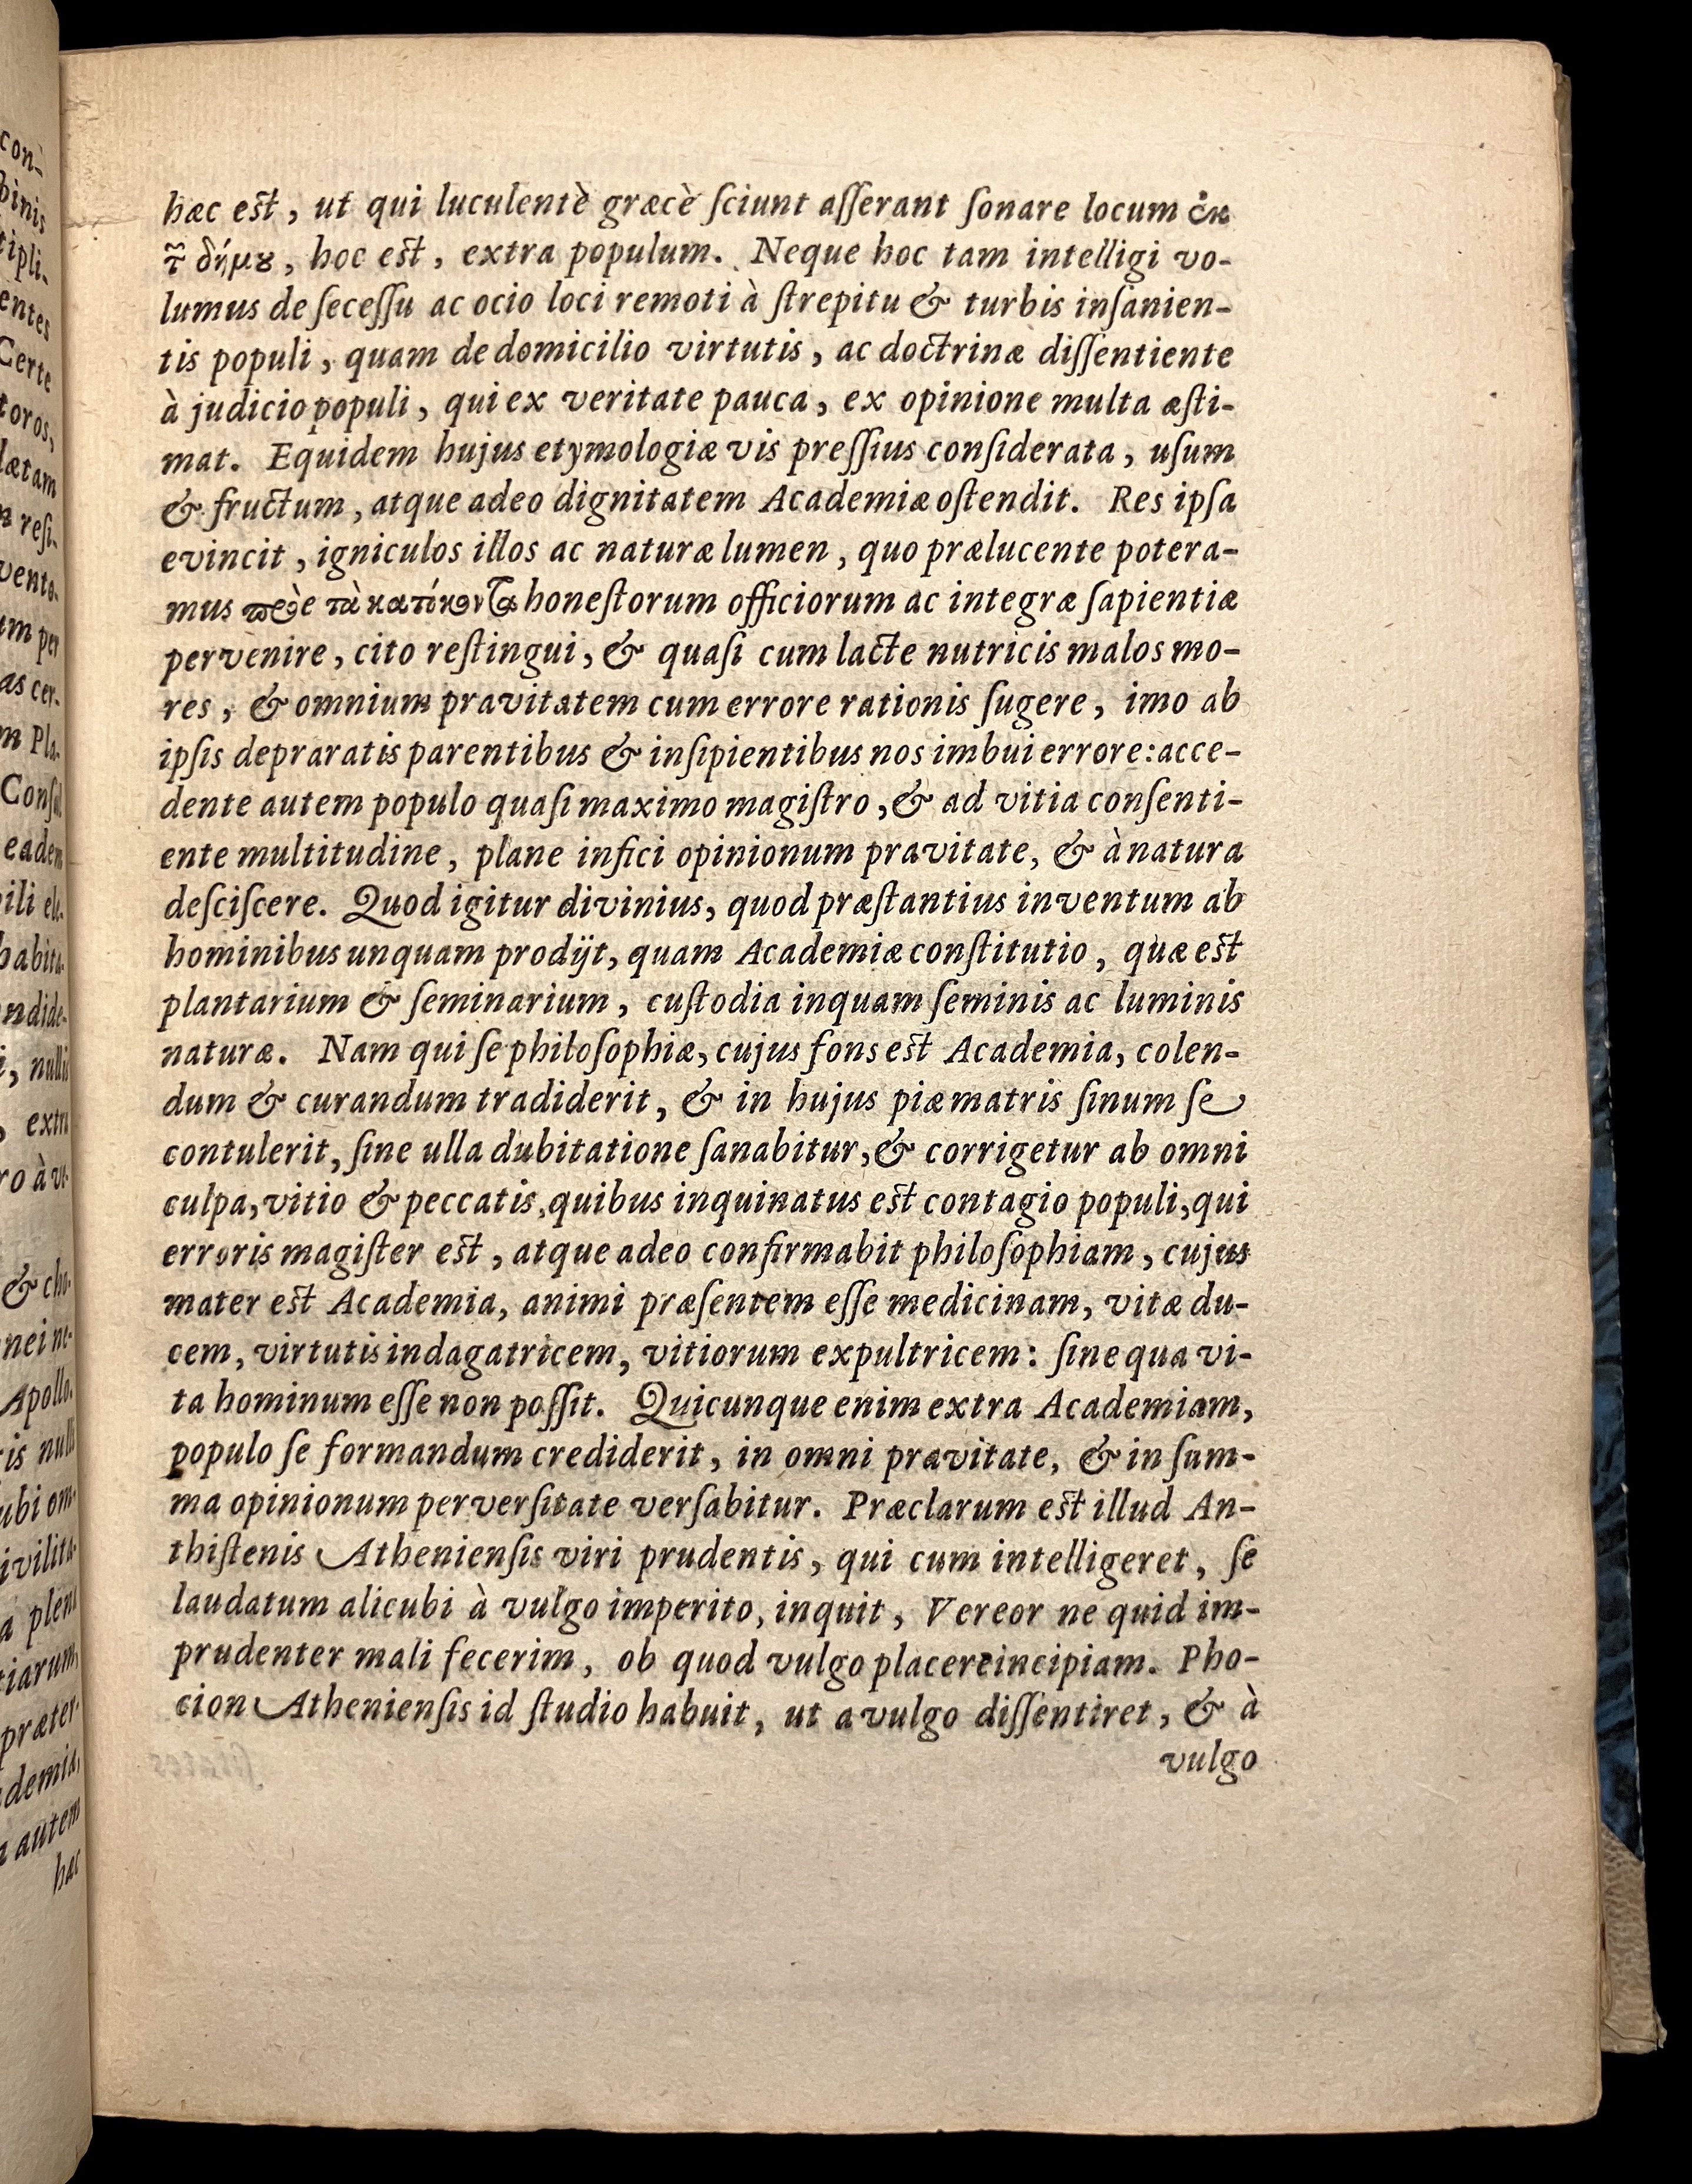 hæc est, ut qui luculentè græcè ſciunt aſſerant ſonare locum ἐκ
τ͂ δήμȣ, hoc est, extra populum. Neque hoc tam intelligi vo-
lumus de ſeceſſu ac ocio loci remoti à ſtrepitu & turbis inſanien-
tis populi, quam de domicilio virtutis, ac doctrinæ diſſentiente
à judicio populi, qui ex veritate pauca, ex opinione multa æſti-
mat. Equidem hujus etymologiæ vis preſſius conſiderata, uſum
& fructum, atque adeo dignitatem Academiæ oſtendit. Res ipſa
evincit, igniculos illos ac naturæ lumen, quo prælucente potera-
mus τὰ honeſtorum officiorum ac integræ ſapientiæ
pervenire, cito reſtingui, & quaſi cum lacte nutricis malos mo-
res, & omnium pravitatem cum errore rationis ſugere, imo ab
ipſis depraratis parentibus & inſipientibus nos imbui errore: acce-
dente autem populo quaſi maximo magiſtro, & ad vitia conſenti-
ente multitudine, plane infici opinionum pravitate, & à natura
deſciſcere. Quod igitur divinius, quod præſtantius inventum ab
hominibus unquam prodijt, quam Academiæ conſtitutio, quæ est
plantarium & ſeminarium, cuſtodia inquam ſeminis ac luminis
naturæ. Nam qui ſe philoſophiæ, cujus fons est Academia, colen-
dum & curandum tradiderit, & in hujus piæ matris ſinum ſe
contulerit, ſine ulla dubitatione ſanabitur, & corrigetur ab omni
culpa, vitio & peccatis, quibus inquinatus est contagio populi, qui
erroris magiſter est, atque adeo confirmabit philoſophiam, cujus
mater est Academia, animi præſentem eſſe medicinam, vitæ du-
cem, virtutis indagatricem, vitiorum expultricem: ſine qua vi-
ta hominum eſſe non poſſit. Quicunque enim extra Academiam,
populo ſe formandum crediderit, in omni pravitate, & in ſum-
ma opinionum perverſitate verſabitur. Præclarum est illud An-
thiſtenis Athenienſis viri prudentis, qui cum intelligeret, ſe
laudatum alicubi à vulgo imperito, inquit, Vereor ne quid im-
prudenter mali fecerim, ob quod vulgo placere incipiam. Pho-
cion Athenienſis id ſtudio habuit, ut a vulgo diſſentiret, & à
vulgo